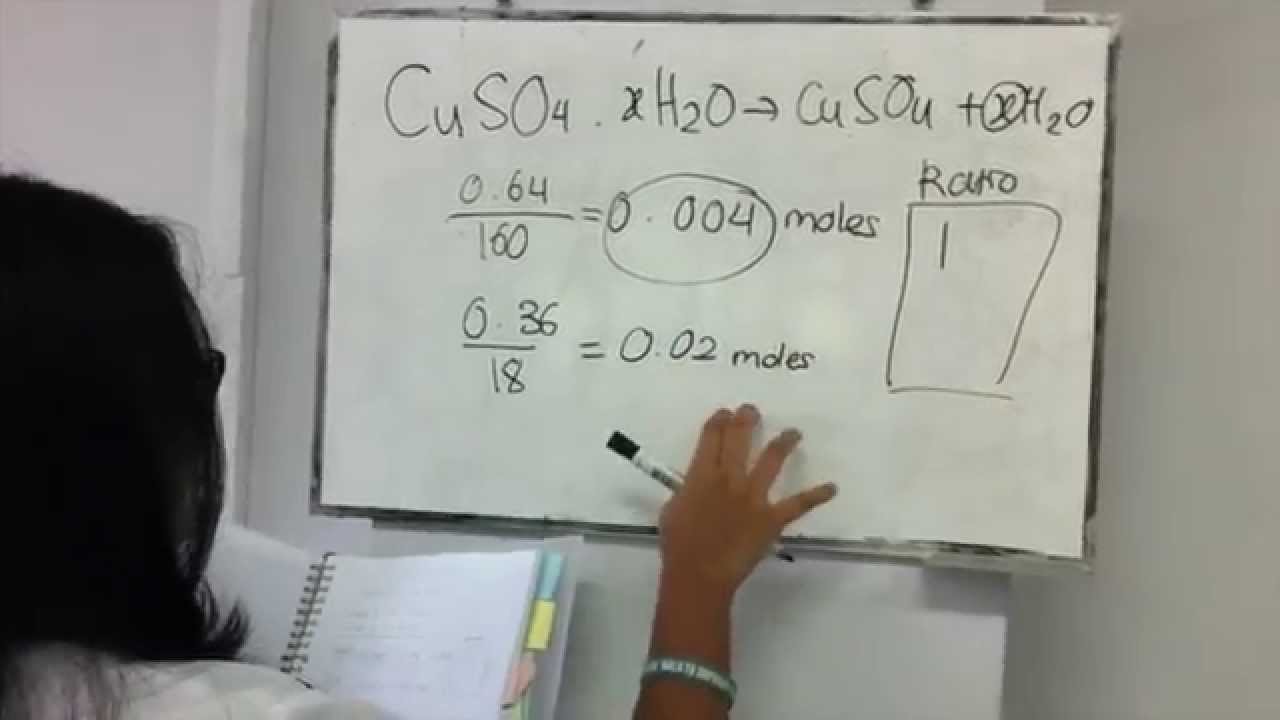 CuSO4 . xH2O → CuSO4 + xH2O
Ratio
0.64
160
= 0.004 moles
1
0.36
18
= 0.02 moles